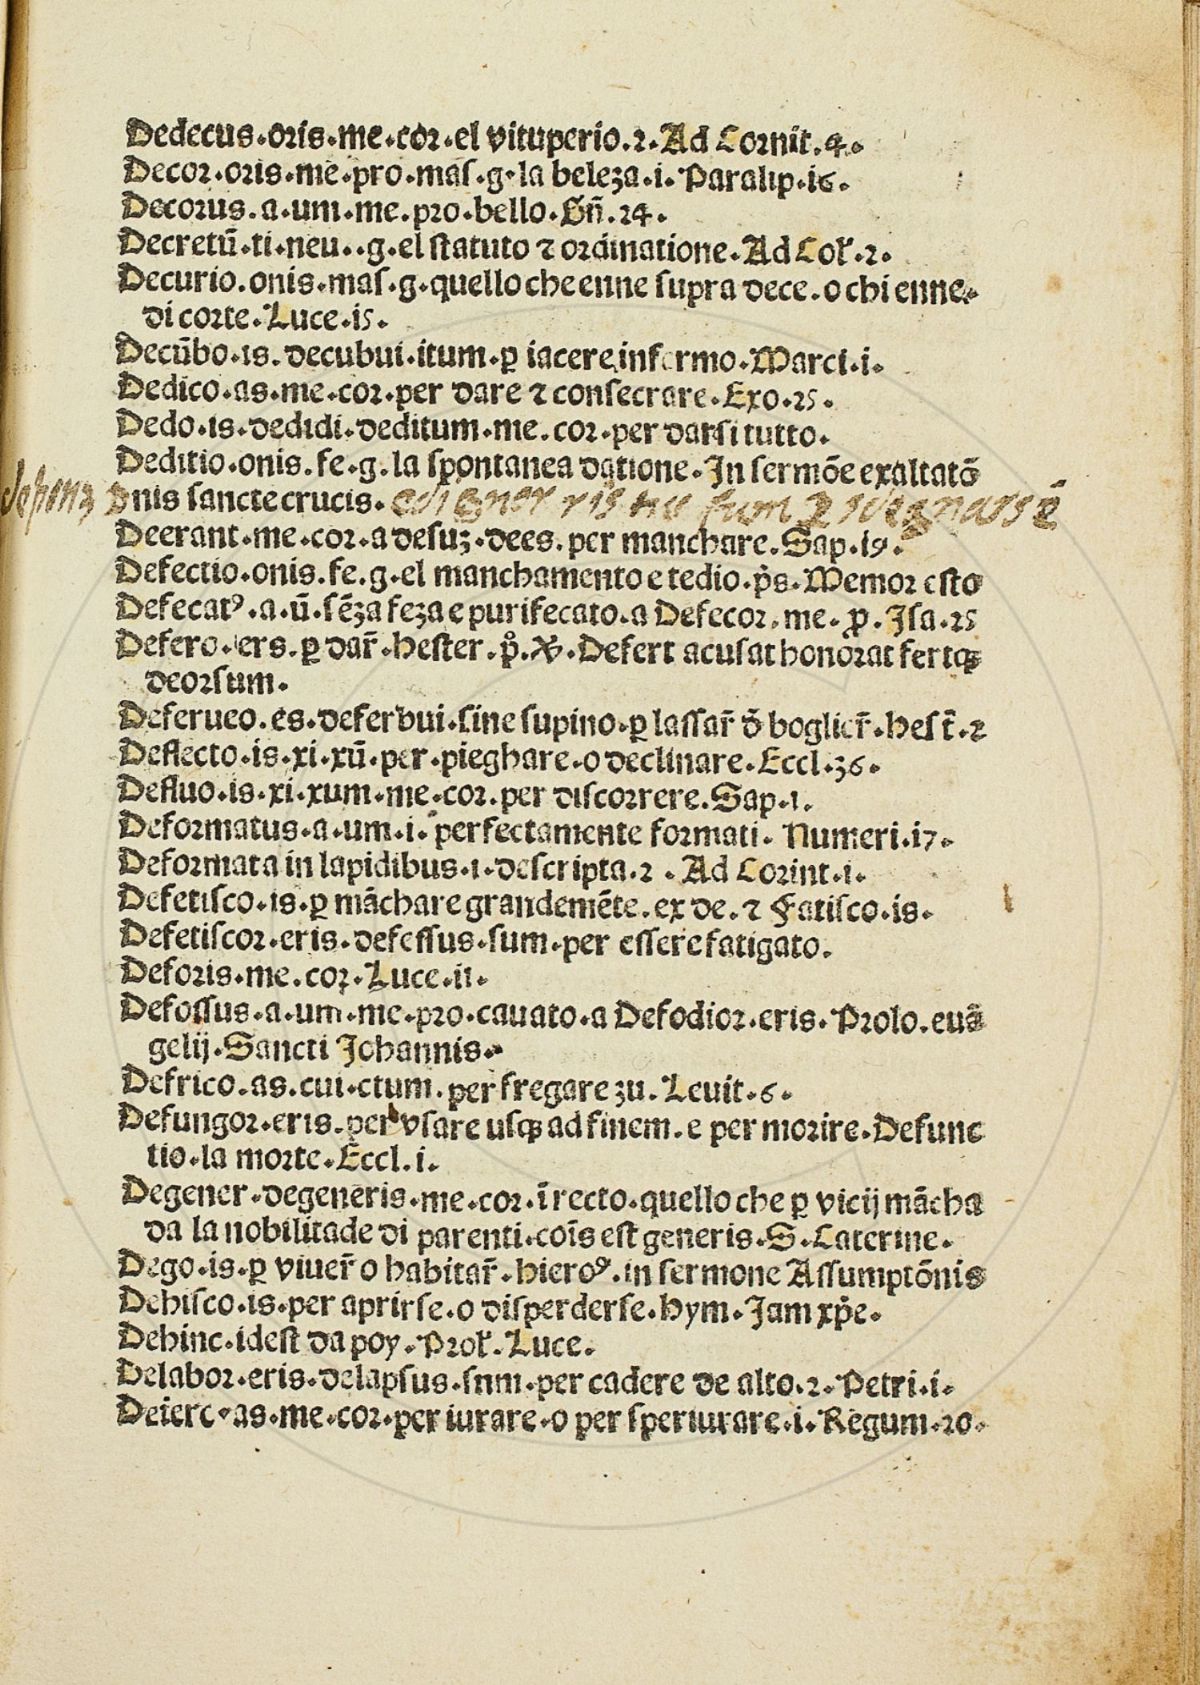 Dedecus.oris.me.cor.el vituperio.2.Ad Cornit.4.
Decor.oris.me.pro.mas.g.la beleza.i.Paralip.16.
Decorus.a.um.me.pro.bello.Gñ.24.
Decretū.ti.neu..g.el statuto ⁊ ordinatione.Ad Col̕.2.
Decurio.onis.mas.g.quello che enne supra dece.o chi enne.
di corte.Luce.15.
Decūbo.is.decubui.itum.ꝑ iacere infermo.Marci.i.
Dedico.as.me.cor.per dare ⁊ consecrare.Exo.25.
Dedo.is.dedidi.deditum.me.cor.per darsi tutto.
Deditio.onis.fe.g.la spontanea datione.In sermōe exaltatō
nis sancte crucis.
Deerant.me.cor.a desuꝫ.dees.per manchare.Sap.19.
Defectio.onis.fe.g.el manchamento e tedio.p̄s.Memor esto
Defecatꝰ.a.ū.sēza feza e purifecato.a Defecor.me.ꝓ.Isa.25
Defero.fers.ꝑ dar̄.Hester.pͦ.XV.Defert acusat honorat fertqꝫ
deorsum.
Deferueo.es.deferbui.sine supino.ꝑ lassar̄ d̄ boglier̄.Hest̄.2
Deflecto.is.xi.xū.per.pieghare.o declinare.Eccl.36.
Defluo.is.xi.xum.me.cor.per discorrere.Sap.1.
Deformatus.a.um.i.perfectamente formati. Numeri.17.
Deformata in lapidibus.1.descripta.2.Ad Corint.1.
Defetisco.is.ꝑ māchare grandemēte.ex de.⁊ Fatisco.is.
Defetiscor.eris.defessus.sum.per essere fatigato.
Deforis.me.cor.Luce.11.
Defossus.a.um.me.pro.cauato.a Defodior.eris.Prolo.euā
gelij.Sancti Johannis.
Defrico.as.cui.ctum.per fregare zu.Leuit.6.
Defungor.eris.per vsare usqꝫ ad finem.e per morire.Defunc
tio.la morte.Eccl.i.
Degener.degeneris.me.cor.ī recto.quello che ꝑ vicij mācha
da la nobilitade di parenti.coīs est generis.S.Caterine.
Dego.is.ꝑ viuer̄ o habitar̄.hieroꝰ.in sermone Assumptōnis
Dehisco.is.per aprirse.o disperderse.hym.Jam xp̄e.
Dehinc.idest da poy.Prol̕.Luce.
Delabor.eris.delapsus.snm.per cadere de alto.2.Petri.i.
Deiero.as.me.cor.per iurare.o per speriurare.i.Regum.20.